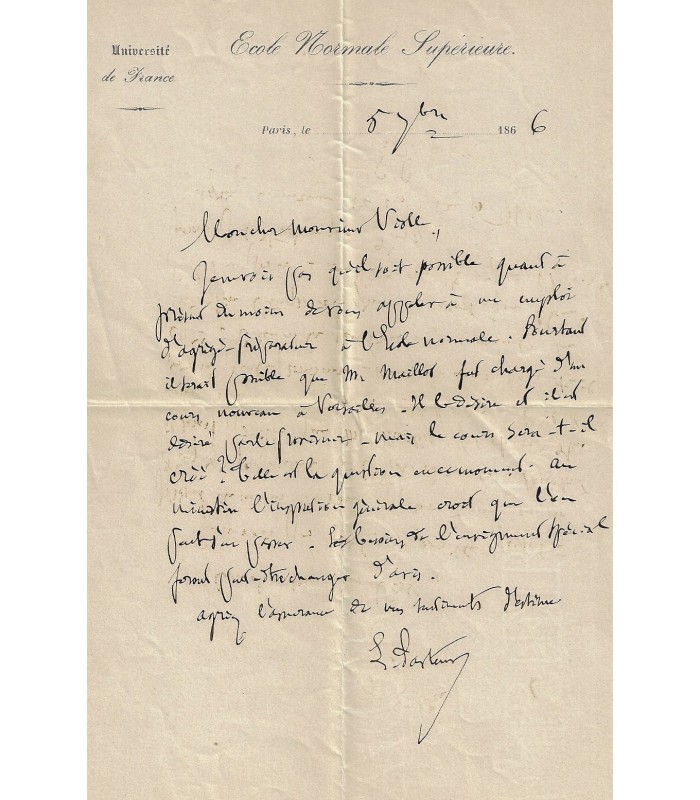 Université
de France
Ecole Normale Supérieure.
Paris, le 5 7bre 1866
Mon cher Monsieur Violle,
Je ne vois pas qu'il soit possible quant à
présent du moins de vous appeler à un emploi
d'agrégé-préparateur à l'Ecole normale. Pourtant
il serait possible que M. Maillot fut chargé d'un
cours nouveau à Versailles. Il le désire et il est
désiré par le proviseur. mais le cours sera-t-il
créé? Telle est la question en ce moment. au
ministère l'inspection générale croit que l'on
peut s'en passer. Les besoins de l'enseignement spécial
feront peut-être changer d'avis.
agréez l'assurance de mes sentiments d'estime
L. Pasteur